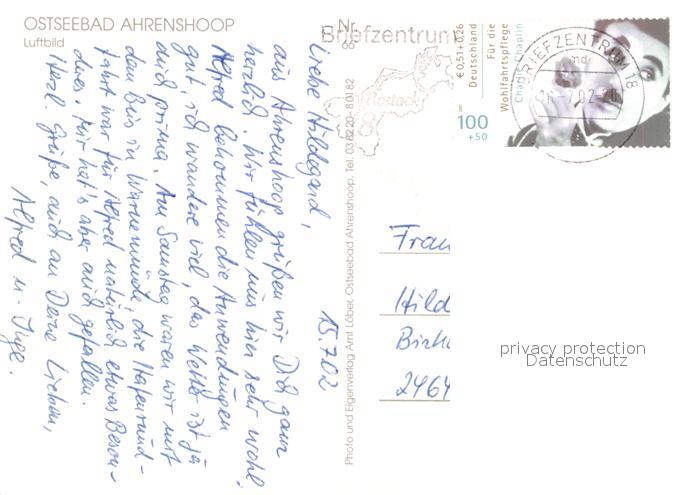 OSTSEEBAD AHRENSHOOP
Luftbild
15.7.02
Liebe Hildegard,
aus Ahrenshoop grüßen wir Dich ganz
herzlich. Wir fühlen uns hier sehr wohl.
Alfred bekommen die Anwendungen
gut, ich wandere viel, das Wetter ist ja
auch prima. Am Samstag waren wir mit
dem Bus in Warnemünde, die Hafenrund-
fahrt war für Alfred natürlich etwas Beson-
deres. Mir hat's aber auch gefallen.
Herzl. Grüße, auch an Deine Lieben,
Alfred u. Inge.
Photo und Eigenverlag Arnt Löber, Ostseebad Ahrenshoop, Tel. 03 82 20 - 8 03 82
Nr.
66
Briefzentrum
Rostock
€ 0,51+0,26
Deutschland
Für die
Wohlfahrtspflege
Charlie Chaplin
100
+50
BRIEFZENTRUM 18
md
Frau
Hild
Birk
2464
privacy protection
Datenschutz